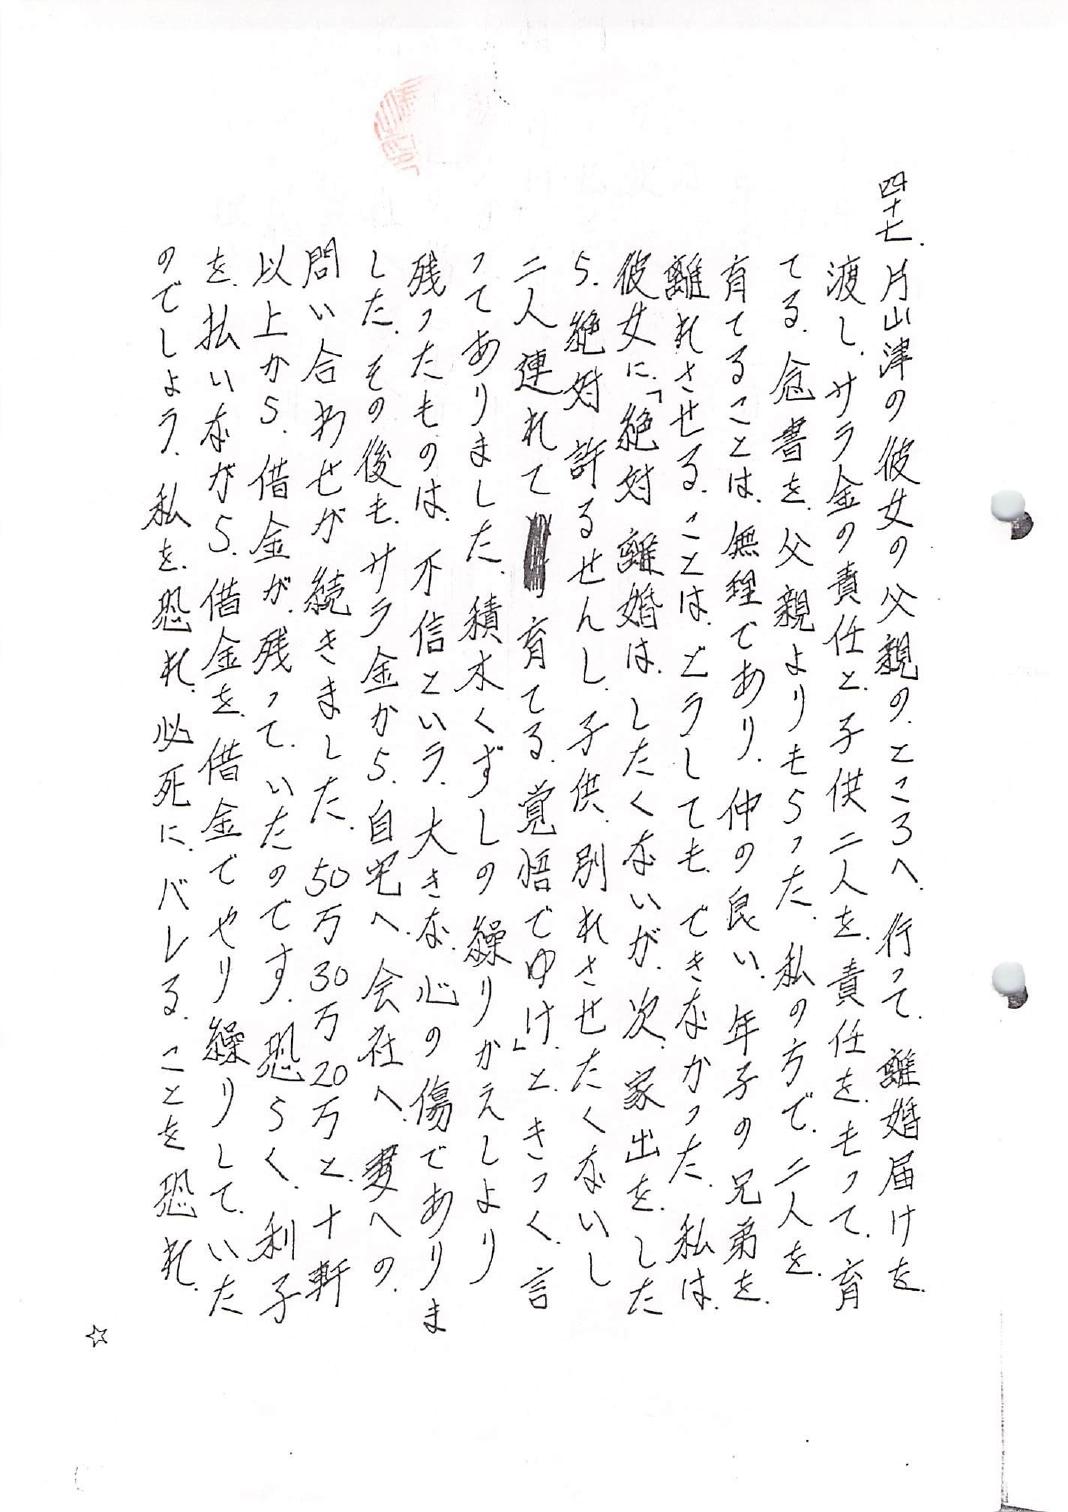 四十七、片山津の彼女の父親の、ところへ、行って、離婚届けを、
渡し、サラ金の責任と、子供二人を、責任を、もって、育
てる、念書を、父親よりもらった、私の方で、二人を、
育てることは、無理であり、仲の良い、年子の兄弟を、
離れさせる、ことは、どうしても、できなかった、私は、
彼女に、「絶対離婚は、したくないが、次、家出を、した
ら、絶対許るせんし、子供、別れさせたくないし
二人連れて育てる、覚悟でゆけ」と、きつく、言
ってありました、積木くずしの繰りかえしより
残ったものは、不信という、大きな、心の傷でありま
した、その後も、サラ金から、自宅へ、会社へ、妻への、
問い合わせが続きました、50万30万20万と、十軒
以上から、借金が、残って、いたのです、恐らく、利子
を、払いながら、借金を、借金でやり繰りして、いた
のでしょう、私を、恐れ、必死に、バレる、ことを恐れ、
☆